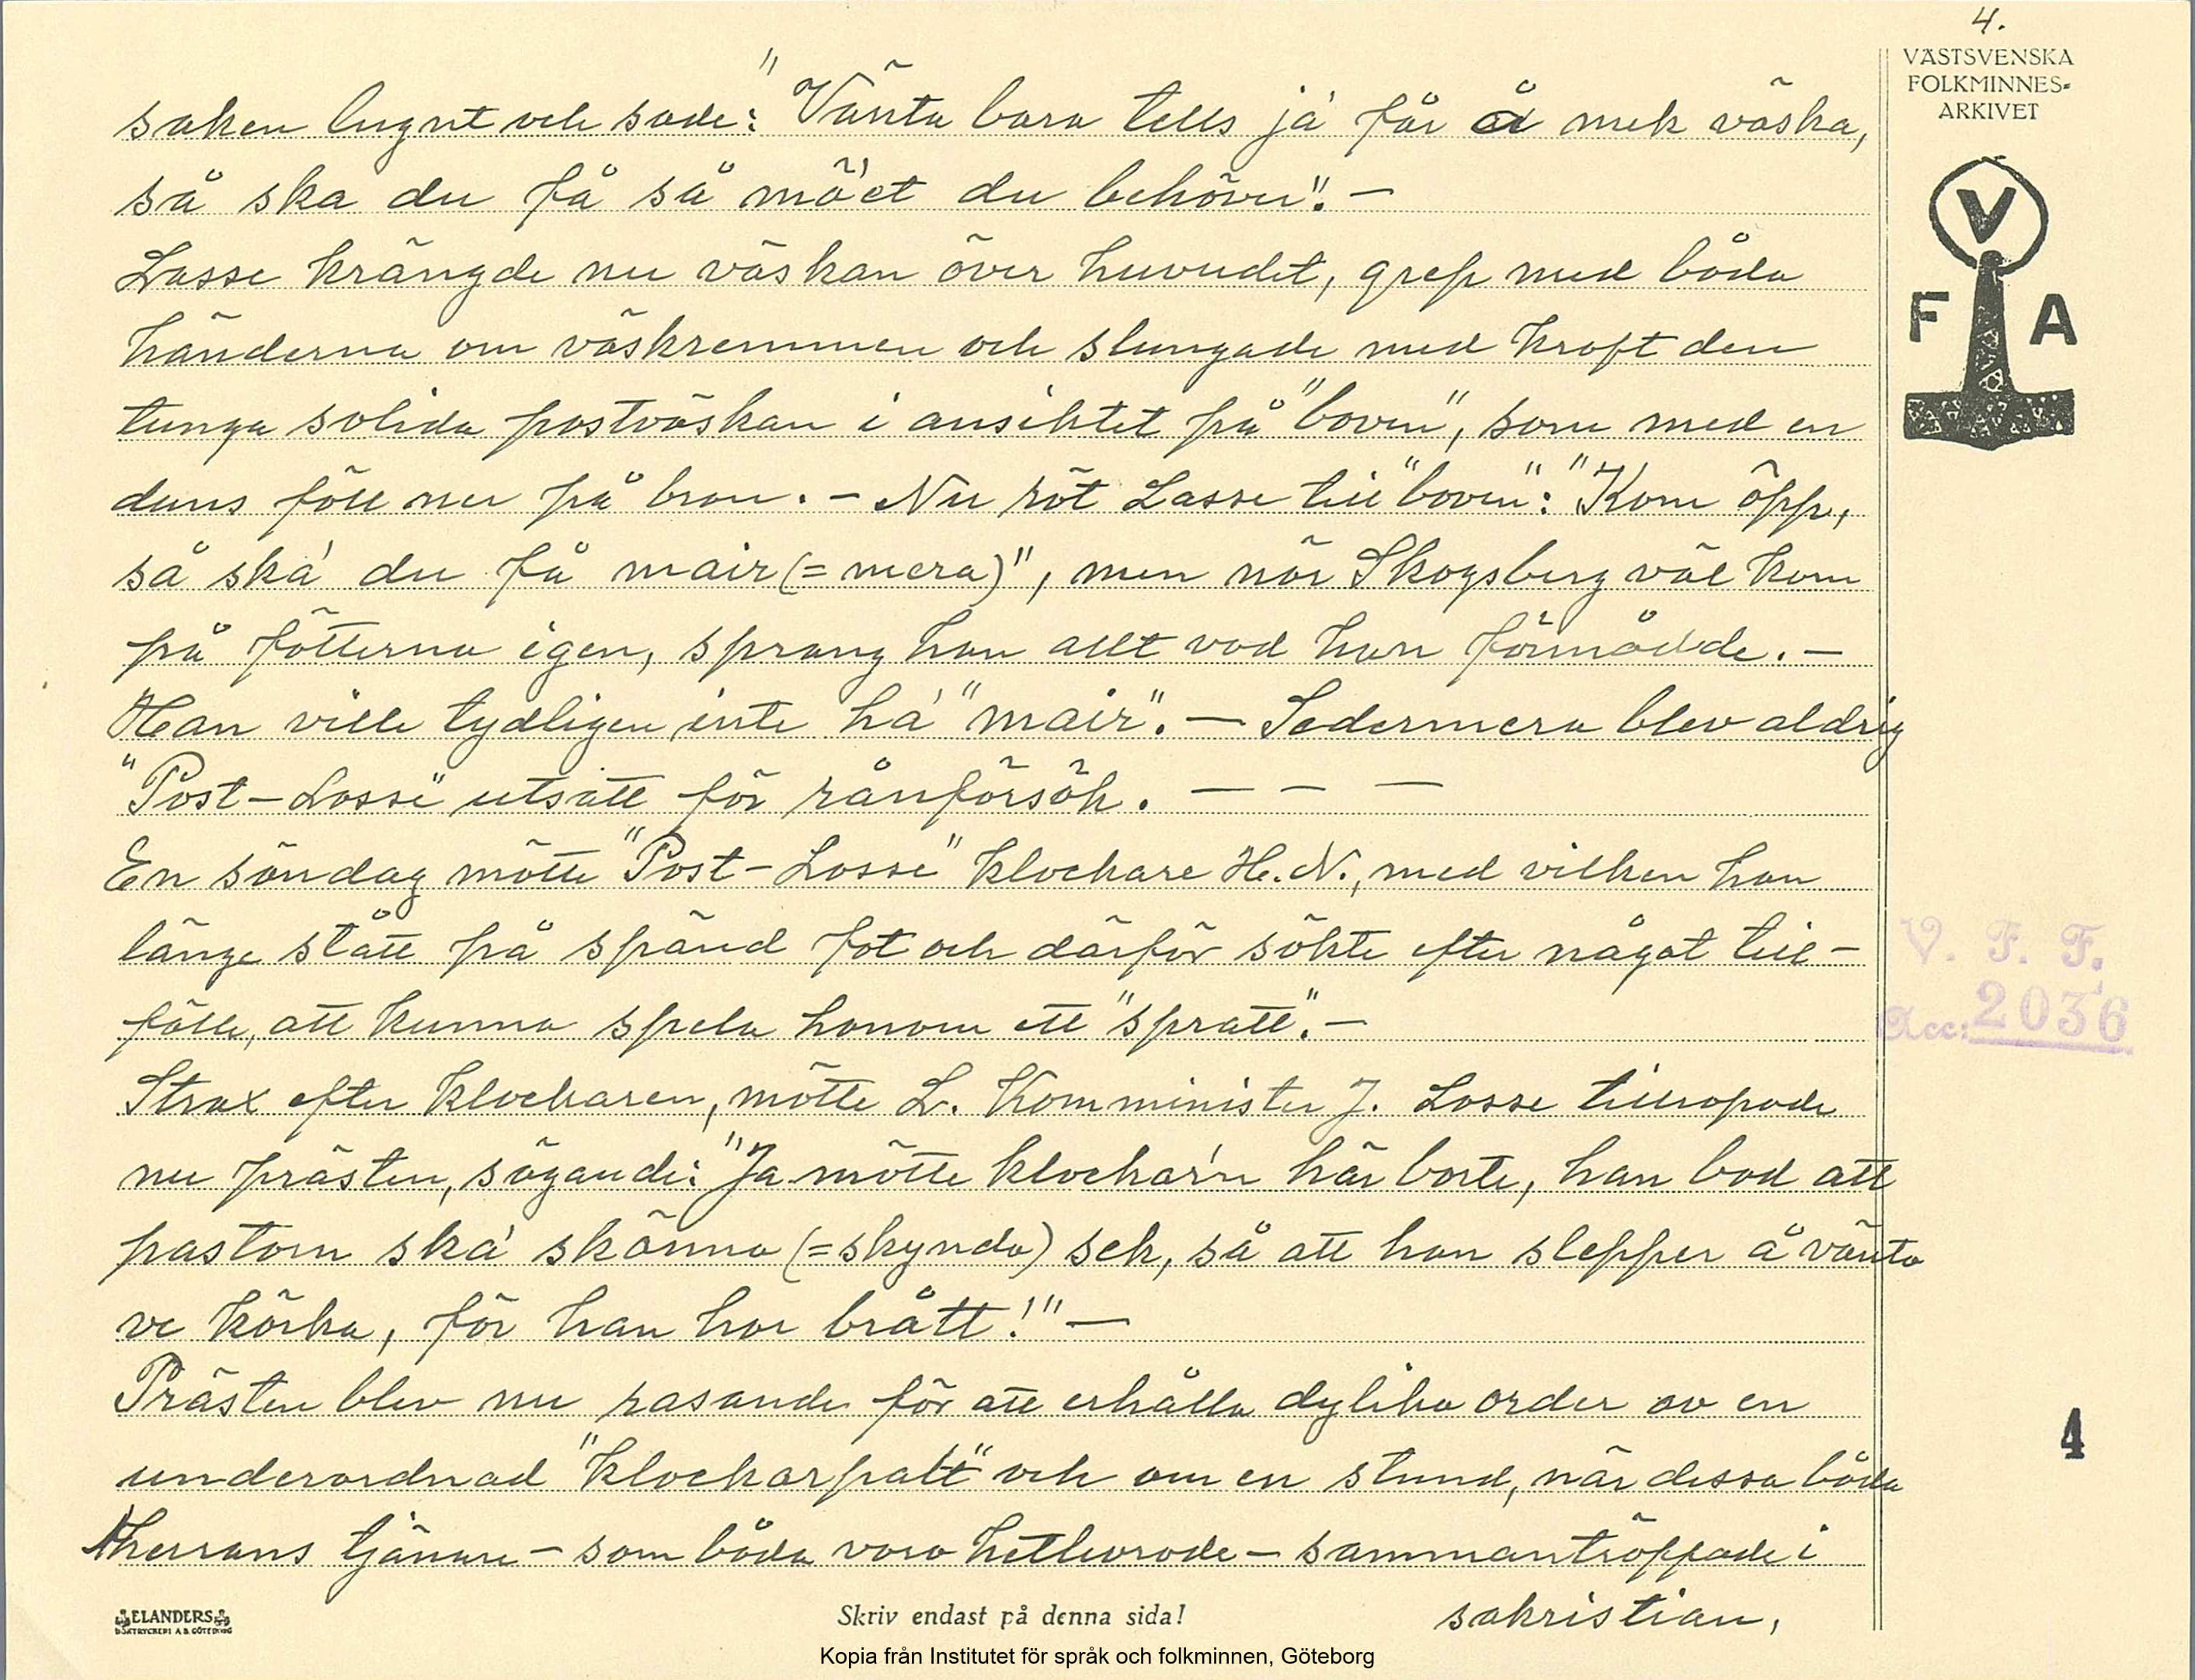 4.
VÄSTSVENSKA
FOLKMINNES-
ARKIVET
V
F A
saken lugnt och sade: "Vänta bara tells ja' får å mek väska,
så ska du få så mö'et du behöver". —
Lasse krängde nu väskan över huvudet, grep med båda
händerna om väskremmen och slungade med kraft den
tunga solida postväskan i ansiktet på "boven", som med en
duns föll ner på bron. - Nu röt Lasse till "boven": "Kom öpp,
så ska' du få mair (= mera)", men när Skogsberg väl kom
på fötterna igen, sprang han allt vad han förmådde. —
Han ville tydligen inte ha' "mair". — Sedermera blev aldrig
"Post-Lasse" utsatt för rånförsök. — — —
En söndag mötte "Post-Lasse" klockare H. N., med vilken han
länge stått på spänd fot och därför sökte efter något till-
fälle, att kunna spela honom ett "spratt". —
Strax efter klockaren, mötte L. Komminister J. Lasse tillropade
nu prästen, sägande: "Ja mötte klocka'rn här borte, han bad att
pastorn ska' skönna (= skynda) sek, så att han slepper å vänta
ve körka, för han har brått!" —
Prästen blev nu rasande för att erhålla dylika order av en
underordnad "klockarpalt" och om en stund, när dessa båda
herrans tjänare - som båda voro hetlevrade - sammanträffade i
sakristian,
V. F. F.
Acc: 2036
4
ELANDERS
BOKTRYCKERI A.B. GÖTEBORG
Skriv endast på denna sida!
Kopia från Institutet för språk och folkminnen, Göteborg